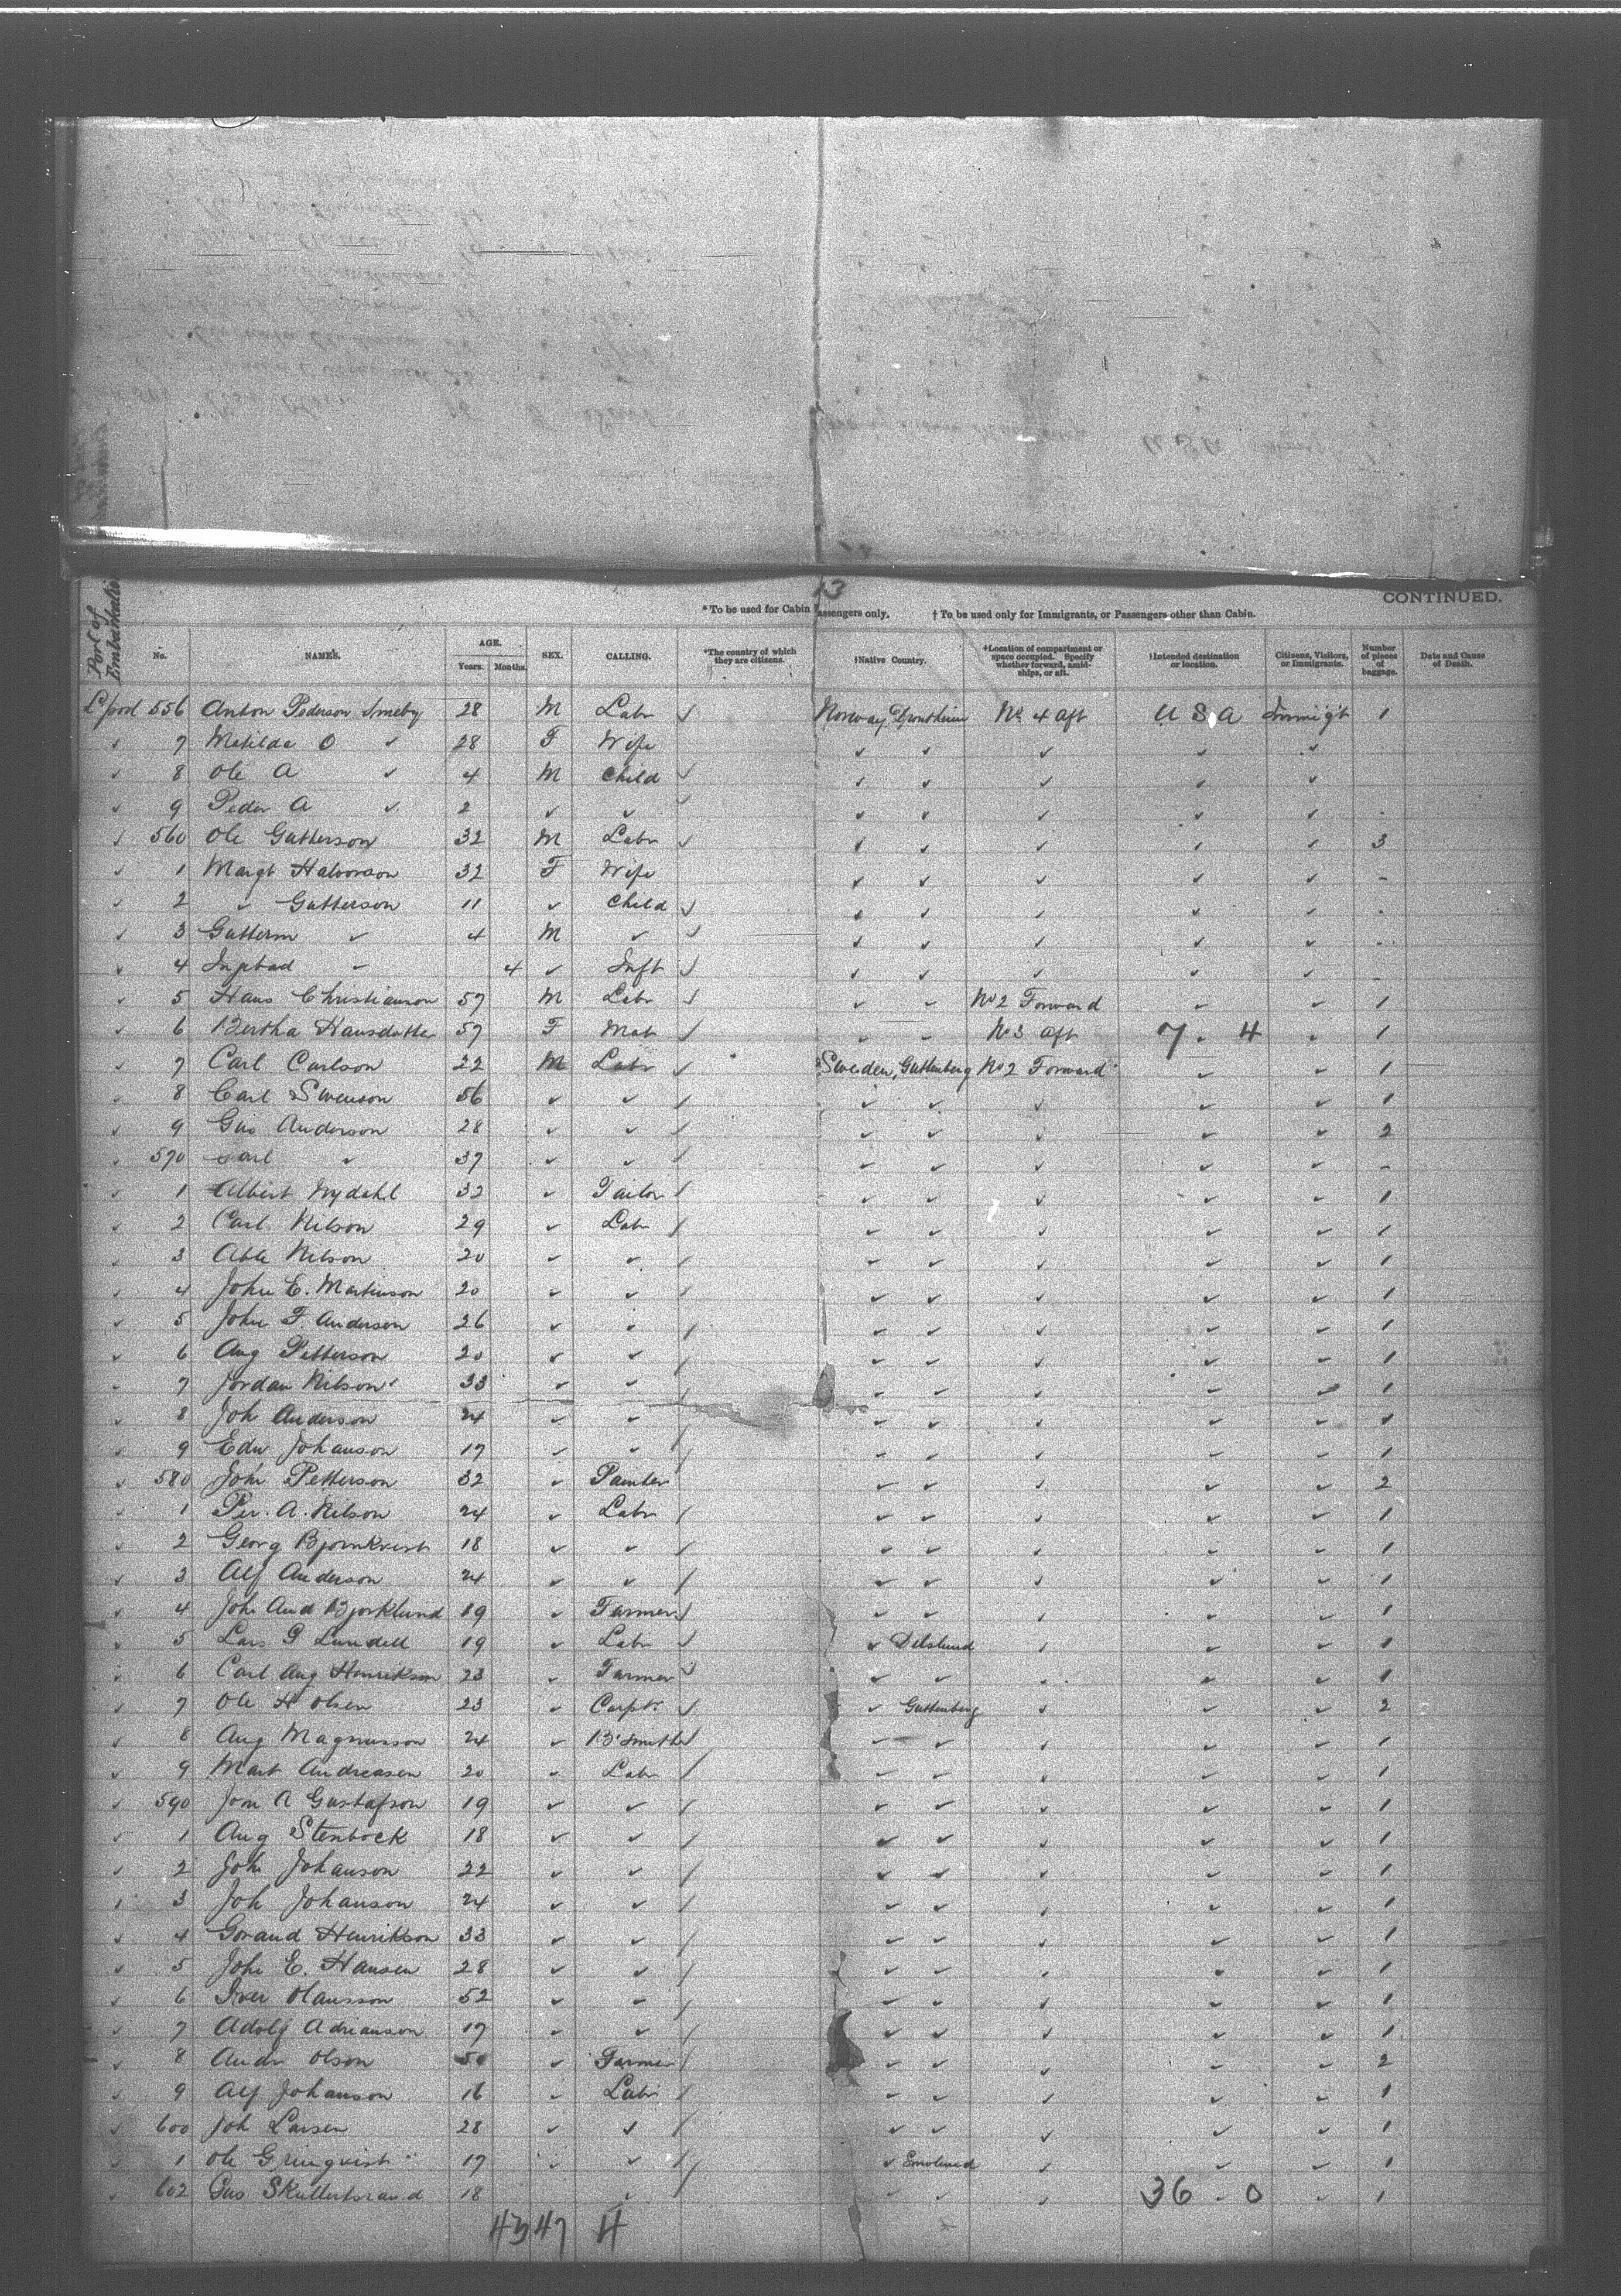 13
CONTINUED.
*To be used for Cabin Passengers only. †To be used only for Immigrants, or Passengers other than Cabin.
Port of Embarkation No. NAMES. AGE. Years. Months. SEX. CALLING. *The country of which they are citizens. †Native Country. †Location of compartment or space occupied. Specify whether forward, amidships, or aft. †Intended destination or location. Citizens, Visitors, or Immigrants. Number of pieces of baggage. Date and Cause of Death.
L'pool 556 Anton Pederson Smeby 28 M Labr ✓ Norway, Drontheim No. 4 aft U S A Immig't 1
✓ 7 Matilda O ✓ 28 F Wife ✓ ✓ ✓ ✓ ✓
✓ 8 Ole A ✓ 4 M Child ✓ ✓ ✓ ✓ ✓ ✓
✓ 9 Peder A ✓ 2 ✓ ✓ ✓ ✓ ✓ ✓ ✓ ✓
✓ 560 Ole Gutterson 32 M Labr ✓ ✓ ✓ ✓ ✓ ✓ 3
✓ 1 Margt Halvorson 32 F Wife ✓ ✓ ✓ ✓ ✓ -
✓ 2 ✓ Gutterson 11 ✓ Child ✓ ✓ ✓ ✓ ✓ ✓ -
✓ 3 Gutterm ✓ 4 M ✓ ✓ ✓ ✓ ✓ ✓ ✓ -
✓ 4 ✓ 4 ✓ Inft ✓ ✓ ✓ ✓ ✓ ✓ -
✓ 5 Hans Christianson 57 M Labr ✓ ✓ ✓ No 2 Forward ✓ ✓ 1
✓ 6 Bertha Hansdatter 57 F Mat / ✓ ✓ No 3 aft 7 - 4 ✓ 1
✓ 7 Carl Carlson 22 M Labr ✓ Sweden, Guttenberg No 2 Forward ✓ ✓ 1
✓ 8 Carl Swenson 56 ✓ ✓ / ✓ ✓ ✓ ✓ ✓ 1
✓ 9 Gus Anderson 28 ✓ ✓ / ✓ ✓ ✓ ✓ ✓ 2
✓ 570 Carl ✓ 37 ✓ ✓ / ✓ ✓ ✓ ✓ ✓ -
✓ 1 Albert Nydahl 32 ✓ Tailor / ✓ ✓ ✓ ✓ ✓ 1
✓ 2 Carl Nilson 29 ✓ Labr / ✓ ✓ ✓ ✓ ✓ 1
✓ 3 Able Nelson 20 ✓ ✓ / ✓ ✓ ✓ ✓ ✓ 1
✓ 4 John E. Martinson 20 ✓ ✓ / ✓ ✓ ✓ ✓ ✓ 1
✓ 5 John F. Anderson 26 ✓ ✓ / ✓ ✓ ✓ ✓ ✓ 1
✓ 6 Aug Petterson 20 ✓ ✓ / ✓ ✓ ✓ ✓ ✓ 1
✓ 7 Jordan Nilson 33 ✓ ✓ / ✓ ✓ ✓ ✓ ✓ 1
✓ 8 Joh Anderson 24 ✓ ✓ / ✓ ✓ ✓ ✓ ✓ 1
✓ 9 Edw Johanson 17 ✓ ✓ / ✓ ✓ ✓ ✓ ✓ 1
✓ 580 John Petterson 32 ✓ Painter ✓ ✓ ✓ ✓ ✓ 2
✓ 1 Per. A. Nelson 24 ✓ Labr / ✓ ✓ ✓ ✓ ✓ 1
✓ 2 Georg Bjornkvist 18 ✓ ✓ / ✓ ✓ ✓ ✓ ✓ 1
✓ 3 Alf Anderson 24 ✓ ✓ / ✓ ✓ ✓ ✓ ✓ 1
✓ 4 Joh And Bjorklund 19 ✓ Farmer / ✓ ✓ ✓ ✓ ✓ 1
✓ 5 Lars P Lundell 19 ✓ Labr ✓ ✓ Dilslund ✓ ✓ ✓ 1
✓ 6 Carl Aug Henrikson 23 ✓ Farmer ✓ ✓ ✓ ✓ ✓ ✓ 1
✓ 7 Ole H Olsen 23 ✓ Carptr ✓ ✓ Guttenberg ✓ ✓ ✓ 2
✓ 8 Aug Magnusson 24 ✓ B'smith ✓ ✓ ✓ ✓ ✓ ✓ 1
✓ 9 Mart Andreasen 20 ✓ Labr / ✓ ✓ ✓ ✓ ✓ 1
✓ 590 Jon A Gustafson 19 ✓ ✓ / ✓ ✓ ✓ ✓ ✓ 1
✓ 1 Aug Stenbock 18 ✓ ✓ / ✓ ✓ ✓ ✓ ✓ 1
✓ 2 Joh Johanson 22 ✓ ✓ / ✓ ✓ ✓ ✓ ✓ 1
✓ 3 Joh Johanson 24 ✓ ✓ / ✓ ✓ ✓ ✓ ✓ 1
✓ 4 Gorand Henrikson 33 ✓ ✓ / ✓ ✓ ✓ ✓ ✓ 1
✓ 5 Joh E. Hansen 28 ✓ ✓ / ✓ ✓ ✓ ✓ ✓ 1
✓ 6 Iver Olausson 52 ✓ ✓ / ✓ ✓ ✓ ✓ ✓ 1
✓ 7 Adolf Adrianson 17 ✓ ✓ / ✓ ✓ ✓ ✓ ✓ 1
✓ 8 Andr Olson 50 ✓ Farmer / ✓ ✓ ✓ ✓ ✓ 2
✓ 9 Alf Johanson 16 ✓ Labr / ✓ ✓ ✓ ✓ ✓ 1
✓ 600 Joh Larsen 28 ✓ ✓ / ✓ ✓ ✓ ✓ ✓ 1
✓ 1 Ole Grenqvist 17 ✓ ✓ / ✓ Smolund ✓ ✓ ✓ 1
✓ 602 Gus Skutterbrand 18 ✓ / ✓ ✓ ✓ 36 - 0 ✓ 1
43 47 H